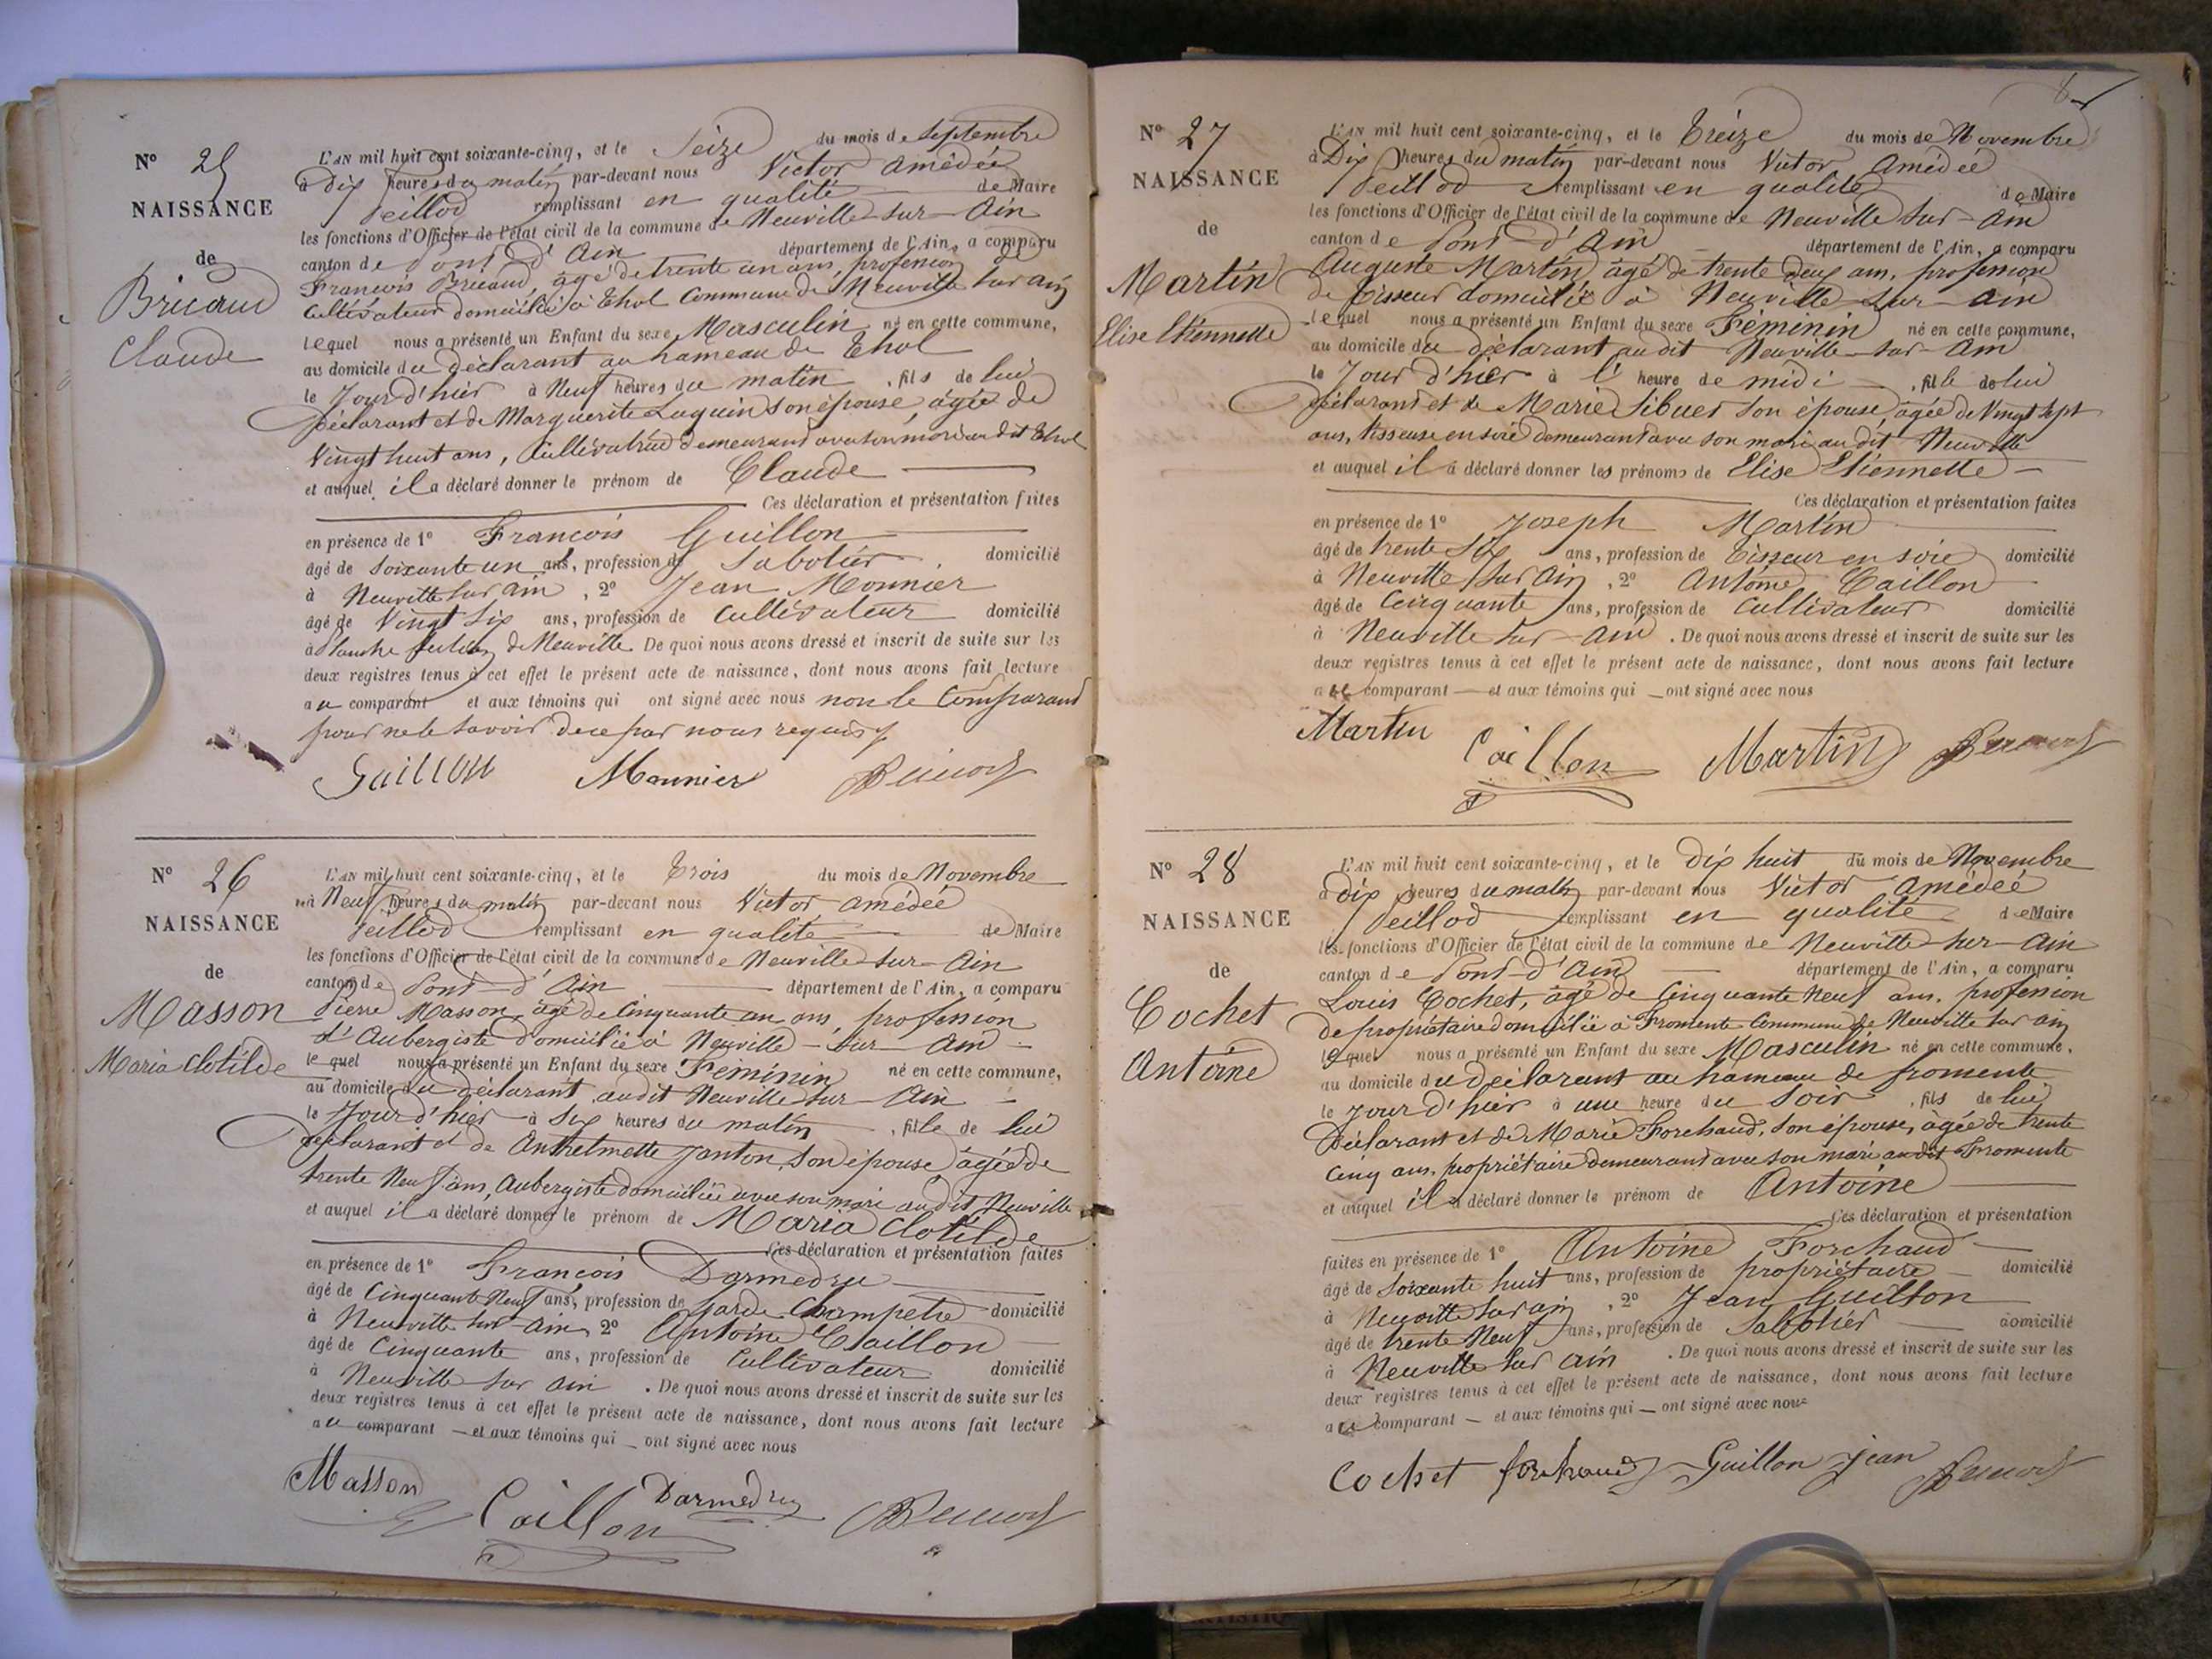 N° 25
NAISSANCE
de
Bricaud
Claude
L'AN mil huit cent soixante-cinq, et le Seize du mois de Septembre
à Dix heures du matin par-devant nous Victor Amédée
Peillod remplissant en qualité de Maire
les fonctions d'Officier de l'état civil de la commune de Neuville-sur-Ain
canton de Pont-d'Ain département de l'Ain, a comparu
François Bricaud, âgé de trente un ans, profession de
Cultivateur domicilié à Thol Commune de Neuville sur ain
lequel nous a présenté un Enfant du sexe Masculin né en cette commune,
au domicile du déclarant au hameau de Thol
le Jour d'hier à Neuf heures du matin, fils de lui
Déclarant et de Marguerite Laguin son épouse, âgée de
Vingt huit ans, Cultivatrice demeurant avec son mari au dit Thol
et auquel il a déclaré donner le prénom de Claude
Ces déclaration et présentation faites
en présence de 1° François Guillon
âgé de soixante un ans, profession de Sabotier, domicilié
à Neuville sur ain, 2° Jean Monnier
âgé de Vingt Six ans, profession de Cultivateur domicilié
à de Neuville. De quoi nous avons dressé et inscrit de suite sur les
deux registres tenus à cet effet le présent acte de naissance, dont nous avons fait lecture
au comparant et aux témoins qui ont signé avec nous non le Comparant
pour ne le savoir de ce par nous requis
Guillon Monnier
N° 26
NAISSANCE
de
Masson
Maria Clotilde
L'AN mil huit cent soixante-cinq, et le Trois du mois de Novembre
à Neuf heures du matin par-devant nous Victor Amédée
Peillod remplissant en qualité de Maire
les fonctions d'Officier de l'état civil de la commune de Neuville-sur-Ain
canton de Pont-d'Ain département de l'Ain, a comparu
Pierre Masson, âgé de Cinquante un ans, profession
d'Aubergiste domicilié à Neuville-sur-Ain
lequel nous a présenté un Enfant du sexe Féminin né en cette commune,
au domicile du déclarant audit Neuville sur Ain
le Jour d'hier à Six heures du matin, fille de lui
déclarant et de Anthelmette Janton, son épouse âgée de
trente Neuf ans, Aubergiste domiciliée avec son mari audit Neuville
et auquel il a déclaré donner le prénom de Maria Clotilde
Ces déclaration et présentation faites
en présence de 1° François Darmedru
âgé de Cinquante Neuf ans, profession de Garde Champetre domicilié
à Neuville sur-Ain 2° Antoine Caillon
âgé de Cinquante ans, profession de Cultivateur domicilié
à Neuville sur Ain. De quoi nous avons dressé et inscrit de suite sur les
deux registres tenus à cet effet le présent acte de naissance, dont nous avons fait lecture
au comparant et aux témoins qui ont signé avec nous
Masson Caillon Darmedru
N° 27
NAISSANCE
de
Martin
Elise Etiennette
L'AN mil huit cent soixante-cinq, et le Treize du mois de Novembre
à Dix heures du matin par-devant nous Victor Amédée
Peillod remplissant en qualité de Maire
les fonctions d'Officier de l'état civil de la commune de Neuville sur-Ain
canton de Pont-d'Ain département de l'Ain, a comparu
Auguste Martin, âgé de trente deux ans, profession
de Tisseur domicilié à Neuville-sur-Ain
lequel nous a présenté un Enfant du sexe Féminin né en cette commune,
au domicile du déclarant audit Neuville-sur-Ain
le Jour d'hier à l' heure de midi, fille de lui
Déclarant et de Marie Sibuet son épouse, âgée de Vingt sept
ans, tisseuse en soie demeurant avec son mari au dit Neuville
et auquel il a déclaré donner les prénoms de Elise Etiennette
Ces déclaration et présentation faites
en présence de 1° Joseph Martin
âgé de trente Six ans, profession de Tisseur en soie domicilié
à Neuville sur Ain, 2° Antoine Caillon
âgé de Cinquante ans, profession de Cultivateur domicilié
à Neuville sur-Ain. De quoi nous avons dressé et inscrit de suite sur les
deux registres tenus à cet effet le présent acte de naissance, dont nous avons fait lecture
au comparant et aux témoins qui ont signé avec nous
Martin Caillon Martin
N° 28
NAISSANCE
de
Cochet
Antoine
L'AN mil huit cent soixante-cinq, et le Dix huit du mois de Novembre
à dix heures du matin par-devant nous Victor Amédée
Peillod remplissant en qualité de Maire
les fonctions d'Officier de l'état civil de la commune de Neuville sur-Ain
canton de Pont-d'Ain département de l'Ain, a comparu
Louis Cochet, âgé de Cinquante Neuf ans, profession
de propriétaire domicilié à Fromente Commune de Neuville sur ain
lequel nous a présenté un Enfant du sexe Masculin né en cette commune,
au domicile du déclarant au hameau de fromente
le Jour d'hier à une heure du Soir, fils de lui
Déclarant et de Marie Forchaud, son épouse, âgée de trente
Cinq ans, propriétaire demeurant avec son mari au dit Fromente
et auquel il a déclaré donner le prénom de Antoine
Ces déclaration et présentation
faites en présence de 1° Antoine Forchaud
âgé de soixante huit ans, profession de propriétaire domicilié
à Neuville sur ain, 2° Jean Guillon
âgé de trente Neuf ans, profession de Sabotier domicilié
à Neuville sur Ain. De quoi nous avons dressé et inscrit de suite sur les
deux registres tenus à cet effet le présent acte de naissance, dont nous avons fait lecture
au comparant et aux témoins qui ont signé avec nous
Cochet forchaud Guillon jean